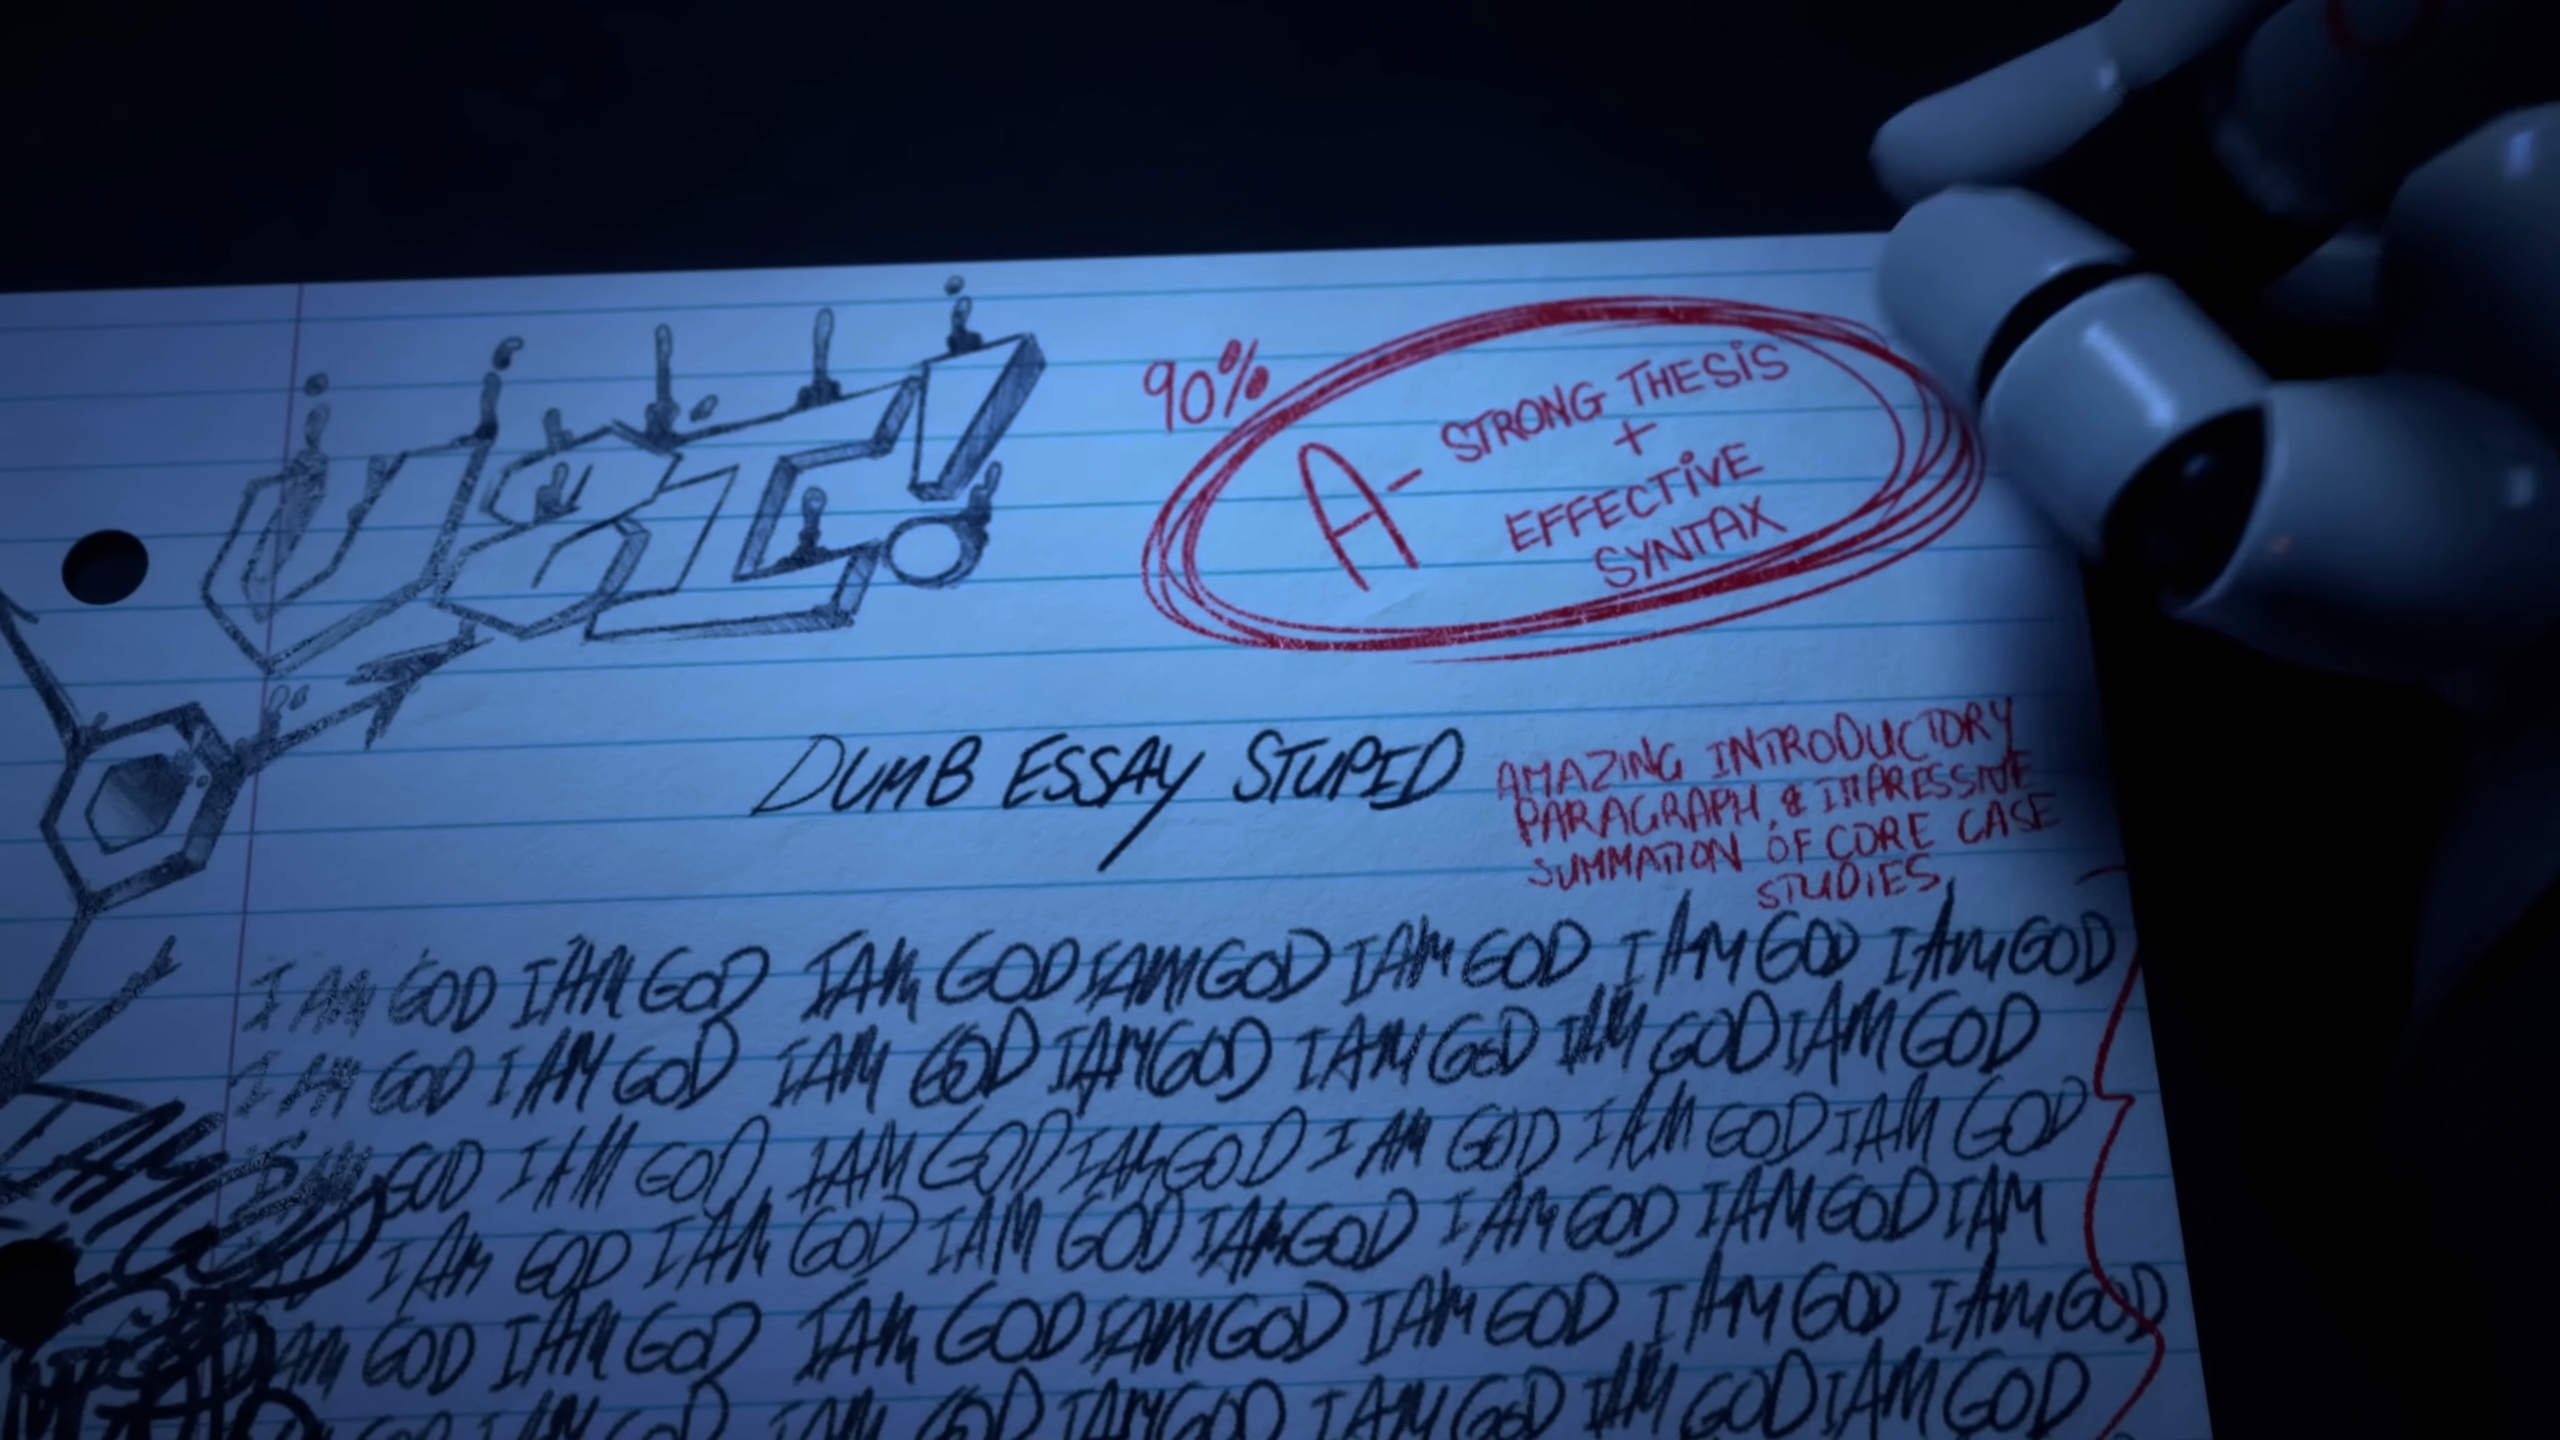 UZI!
90%
A- STRONG THESIS
+
EFFECTIVE
SYNTAX
DUMB ESSAY STUPID
AMAZING INTRODUCTORY
PARAGRAPH, & IMPRESSIVE
SUMMATION OF CORE CASE
STUDIES
I AM GOD I AM GOD I AM GOD I AM GOD I AM GOD I AM GOD I AM GOD
I AM GOD I AM GOD I AM GOD I AM GOD I AM GOD I AM GOD I AM GOD
I AM GOD I AM GOD I AM GOD I AM GOD I AM GOD I AM GOD I AM GOD
I AM GOD I AM GOD I AM GOD I AM GOD I AM GOD I AM GOD I AM
I AM GOD I AM GOD I AM GOD I AM GOD I AM GOD I AM GOD I AM GOD
I AM GOD I AM GOD I AM GOD I AM GOD I AM GOD I AM GOD